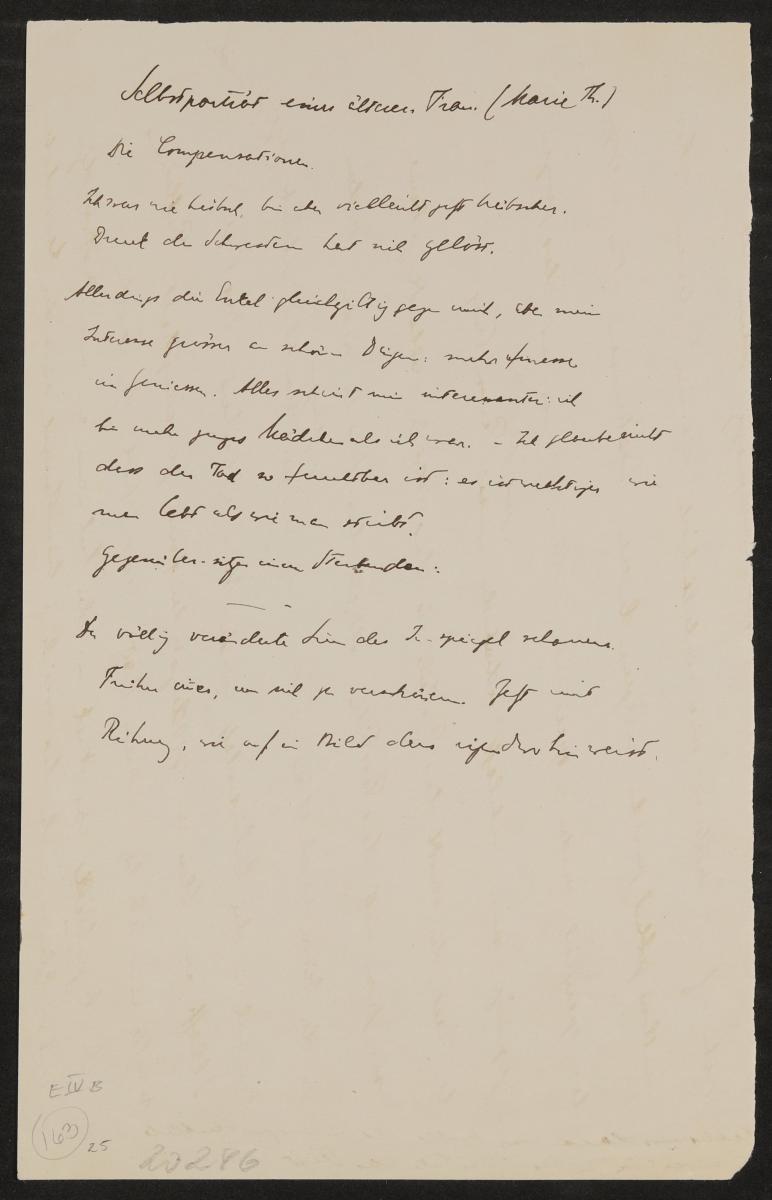 Selbstporträt einer älteren Frau. (Marie Th.)
Die Compensationen.
Ich war nie hübsch, bin aber vielleicht jetzt hübscher.
Druck der Schwestern hat sich gelöst.
Allerdings die Enkel gleichgiltig gegen mich, aber mein
Interesse grösser an schönen Dingen: mehr finesse
im Geniessen. Alles scheint mir interessanter: ich
bin mehr junges Mädchen als ich war. – Ich glaube nicht
dass der Tod so furchtbar ist: es ist wichtiger wie
man lebt als wie man stirbt.
Gegenüber-sitzen einem Sterbenden:
Der völlig veränderte Sinn des In-spiegel schauens.
Früher dies, um sich zu verschönern. Jetzt mit
Rührung, wie auf ein Bild das irgendwohin weist.
E IV B
163
25
20286